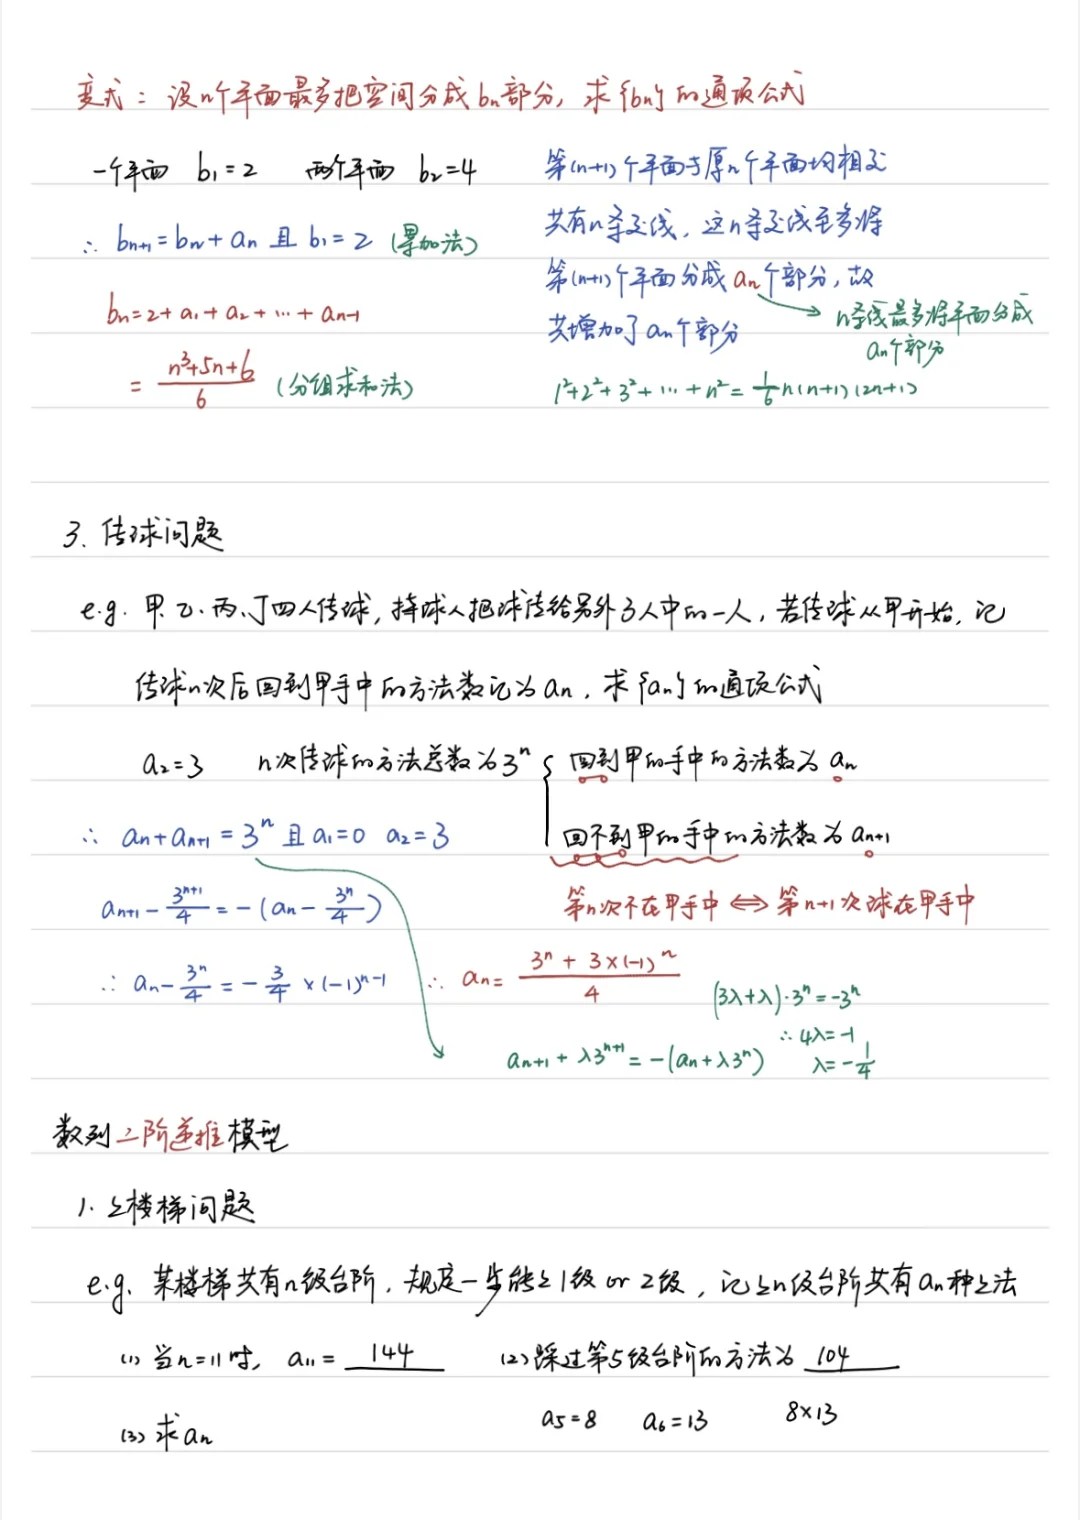 变式：设n个平面最多把空间分成bn部分，求{bn}的通项公式
一个平面 b₁=2 两个平面 b₂=4
∴ bn+1=bn+an 且 b₁=2 (累加法)
bn=2+a₁+a₂+…+an-1
= (n³+5n+6)/6 (分组求和法)
第(n+1)个平面与原n个平面均相交
共有n条交线，这n条交线至多将
第(n+1)个平面分成an个部分，故
共增加了an个部分
n条线最多将平面分成
an个部分
1²+2²+3²+…+n²=1/6n(n+1)(2n+1)
3. 传球问题
e.g. 甲.乙.丙.丁四人传球，持球人把球传给另外3人中的一人，若传球从甲开始，记
传球n次后回到甲手中的方法数记为an，求{an}的通项公式
a₂=3 n次传球的方法总数为3ⁿ { 回到甲的手中的方法数为an
回不到甲的手中的方法数为an+1
∴ an+an+1=3ⁿ 且 a₁=0 a₂=3
第n次不在甲手中⇔第n+1次球在甲手中
an+1-3ⁿ⁺¹/4=-(an-3ⁿ/4)
∴ an-3ⁿ/4=-3/4×(-1)ⁿ⁻¹ ∴ an=(3ⁿ+3×(-1)ⁿ)/4
(3λ+λ)·3ⁿ=-3ⁿ
∴4λ=-1
λ=-1/4
an+1+λ3ⁿ⁺¹=-(an+λ3ⁿ)
数列二阶递推模型
1. 上楼梯问题
e.g. 某楼梯共有n级台阶，规定一步能上1级or 2级，记上n级台阶共有an种上法
(1) 当n=11时，a₁₁= 144 (2) 踩过第5级台阶的方法为 104
a₅=8 a₆=13 8×13
(3) 求an